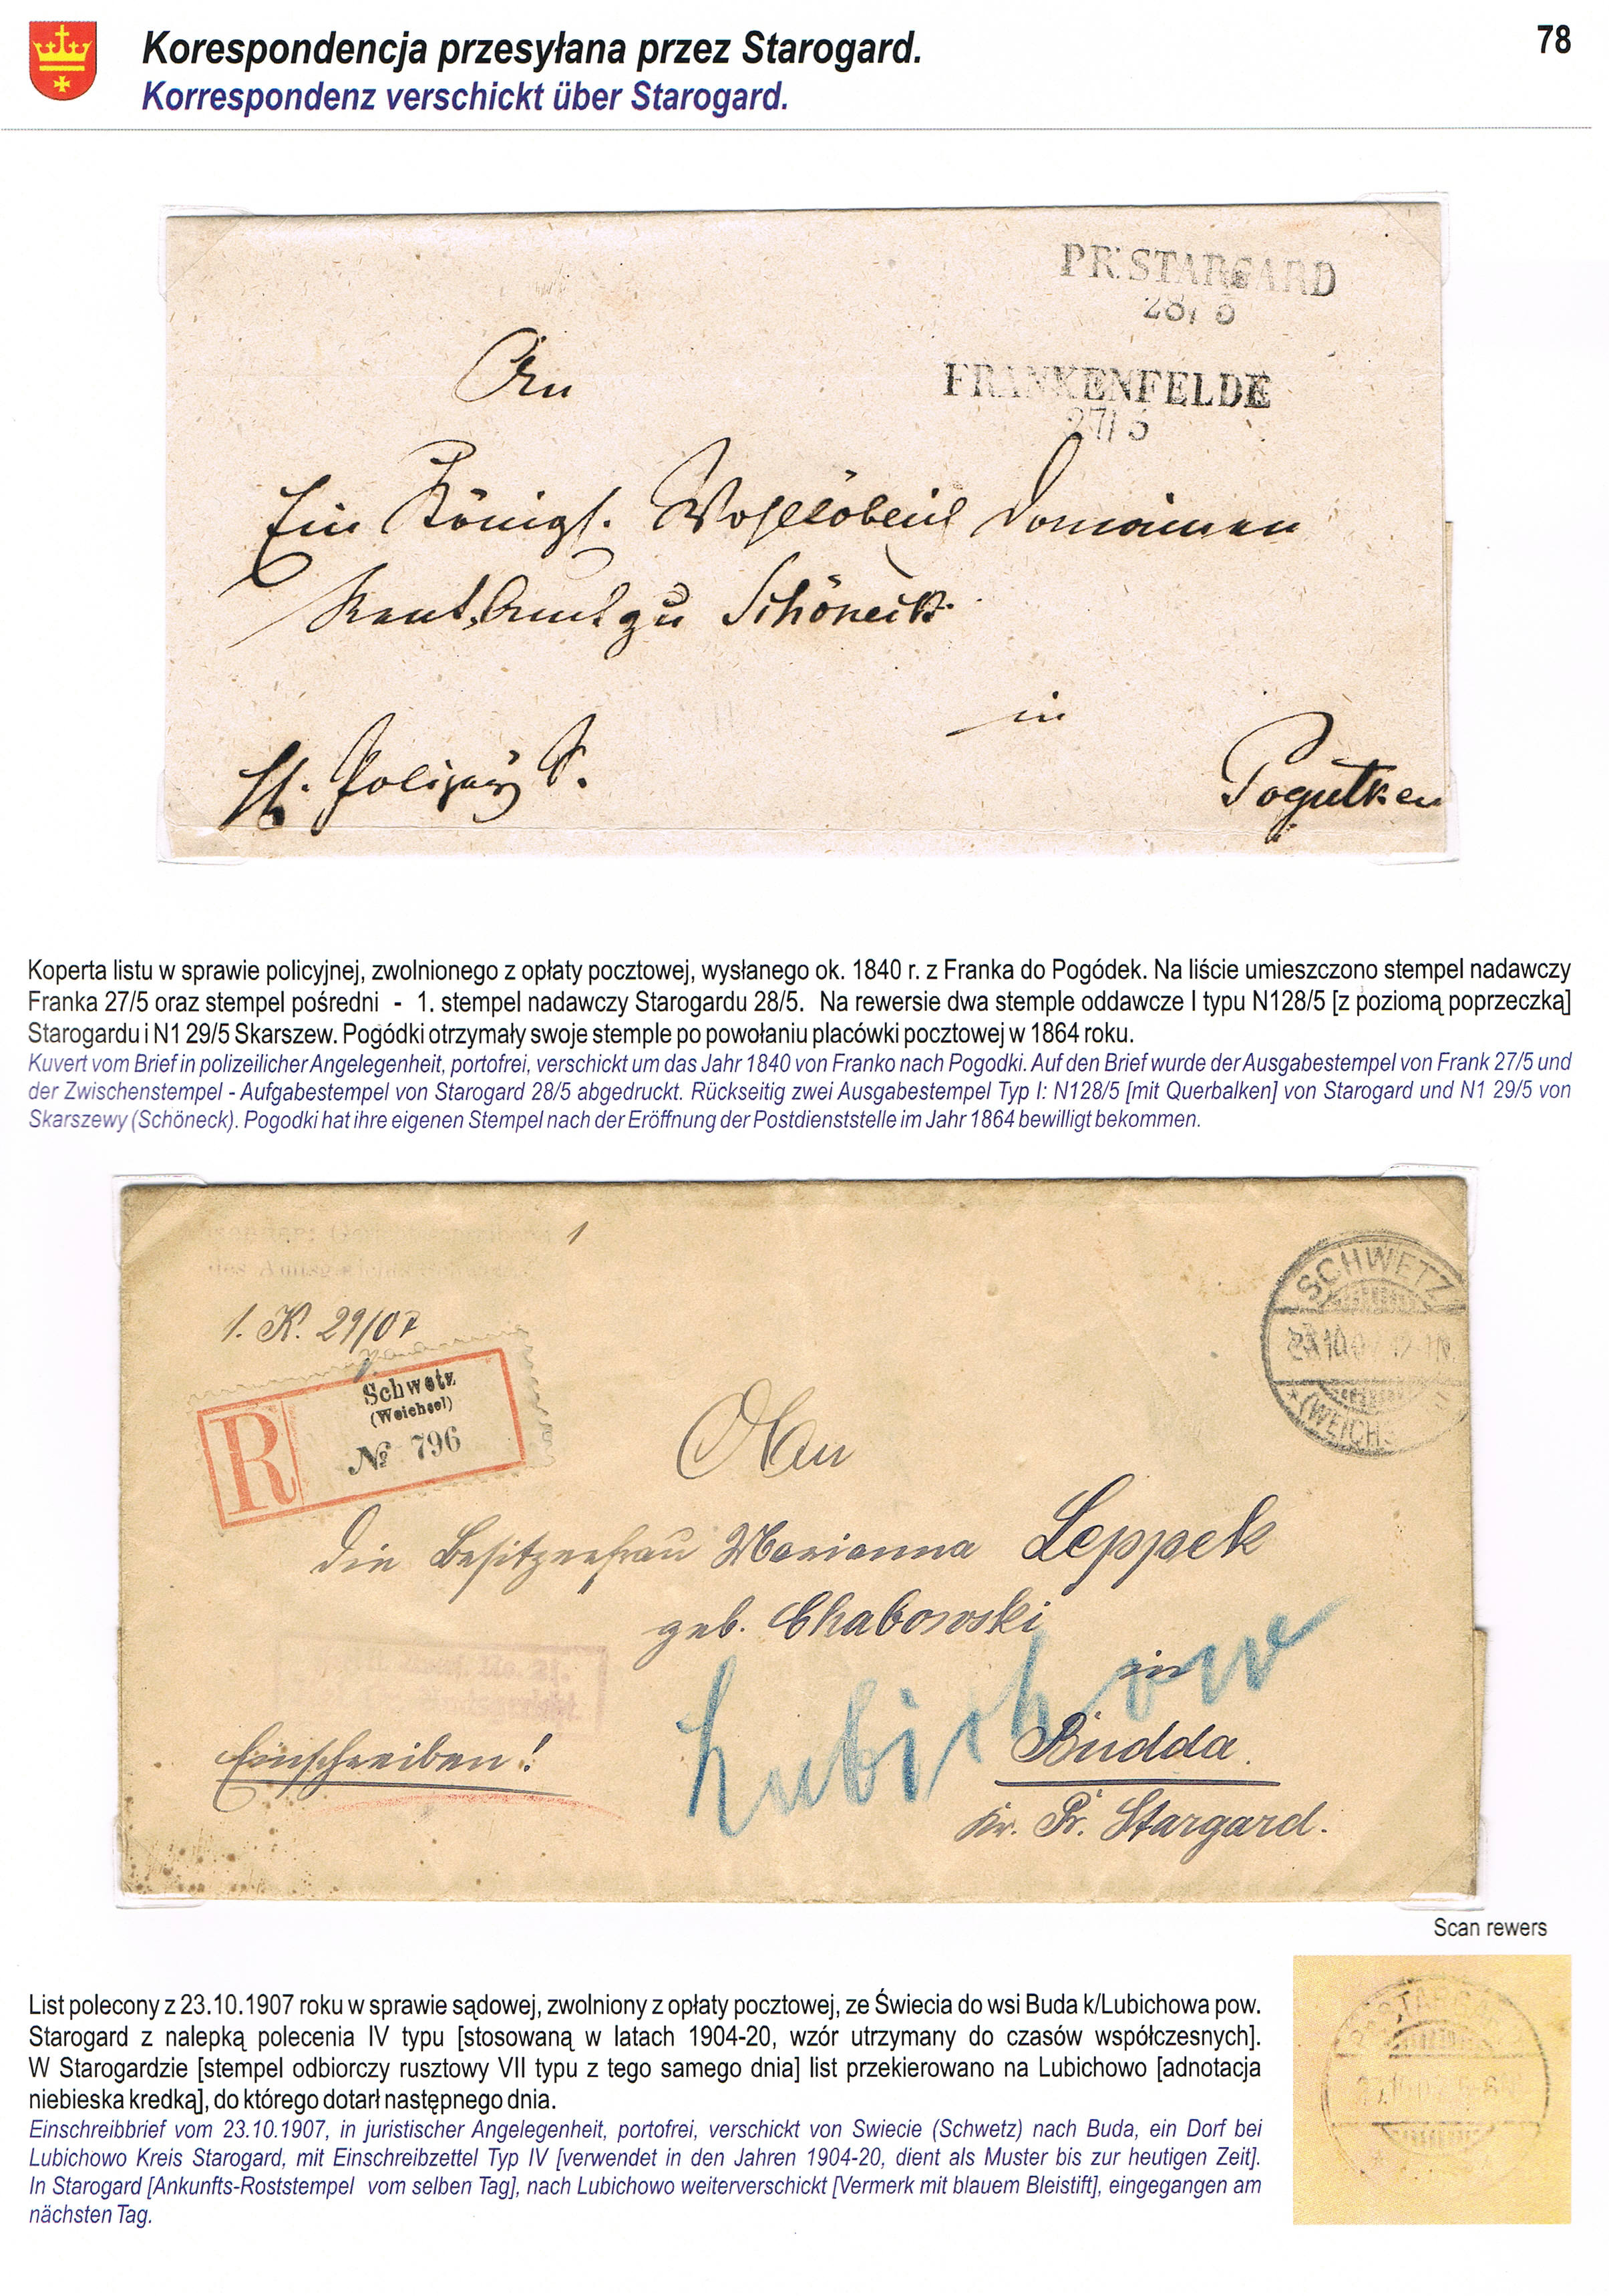 Korespondencja przesyłana przez Starogard.
78
Korrespondenz verschickt über Starogard.
PR. STARGARD
28/ 5
FRANKENFELDE
27/ 5
An
Ein Königl. Wohllöbl Domainen
Rent Amt zu Schöneck
in
H. Polizey S.
Pogutken
Koperta listu w sprawie policyjnej, zwolnionego z opłaty pocztowej, wysłanego ok. 1840 r. z Franka do Pogódek. Na liście umieszczono stempel nadawczy
Franka 27/5 oraz stempel pośredni - 1. stempel nadawczy Starogardu 28/5. Na rewersie dwa stemple oddawcze I typu N128/5 [z poziomą poprzeczką]
Starogardu i N1 29/5 Skarszew. Pogódki otrzymały swoje stemple po powołaniu placówki pocztowej w 1864 roku.
Kuvert vom Brief in polizeilicher Angelegenheit, portofrei, verschickt um das Jahr 1840 von Franko nach Pogodki. Auf den Brief wurde der Ausgabestempel von Frank 27/5 und
der Zwischenstempel - Aufgabestempel von Starogard 28/5 abgedruckt. Rückseitig zwei Ausgabestempel Typ I: N128/5 [mit Querbalken] von Starogard und N1 29/5 von
Skarszewy (Schöneck). Pogodki hat ihre eigenen Stempel nach der Eröffnung der Postdienststelle im Jahr 1864 bewilligt bekommen.
1
1. K. 29/07
SCHWETZ
23.10.07 12-1N.
* (WEICHS
R
Schwetz
(Weichsel)
№ 796
An
die Besitzerfrau Marianna Leppek
geb. Chabowski
in
Lubichow
Budda.
Einschreiben!
Kr. Pr. Stargard.
Scan rewers
List polecony z 23.10.1907 roku w sprawie sądowej, zwolniony z opłaty pocztowej, ze Świecia do wsi Buda k/Lubichowa pow.
Starogard z nalepką polecenia IV typu [stosowaną w latach 1904-20, wzór utrzymany do czasów współczesnych].
W Starogardzie [stempel odbiorczy rusztowy VII typu z tego samego dnia] list przekierowano na Lubichowo [adnotacja
niebieska kredką], do którego dotarł następnego dnia.
Einschreibbrief vom 23.10.1907, in juristischer Angelegenheit, portofrei, verschickt von Swiecie (Schwetz) nach Buda, ein Dorf bei
Lubichowo Kreis Starogard, mit Einschreibzettel Typ IV [verwendet in den Jahren 1904-20, dient als Muster bis zur heutigen Zeit].
In Starogard [Ankunfts-Roststempel vom selben Tag], nach Lubichowo weiterverschickt [Vermerk mit blauem Bleistift], eingegangen am
nächsten Tag.